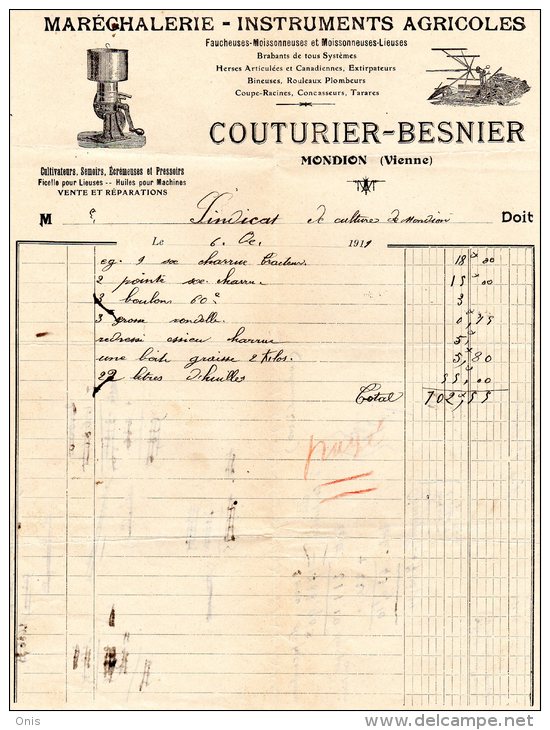 MARÉCHALERIE - INSTRUMENTS AGRICOLES
Faucheuses-Moissonneuses et Moissonneuses-Lieuses
Brabants de tous Systèmes
Herses Articulées et Canadiennes, Extirpateurs
Bineuses, Rouleaux Plombeurs
Coupe-Racines, Concasseurs, Tarares
COUTURIER-BESNIER
MONDION (Vienne)
Cultivateurs, Semoirs, Écrémeuses et Pressoirs
Ficelle pour Lieuses -- Huiles pour Machines
VENTE ET RÉPARATIONS
M Sindicat de culture de Mondion Doit
Le 6 191
1 soc charrue tracteur 18,00
2 pointe soc charrue 15,00
3 boulons 60 3
3 grosse rondelle 0,75
redressi essieu charrue 5,
une boite graisse 2 kilos 5,80
22 litres d'huilles 55,00
Total 102,55
payé
Onis
www.delcampe.net